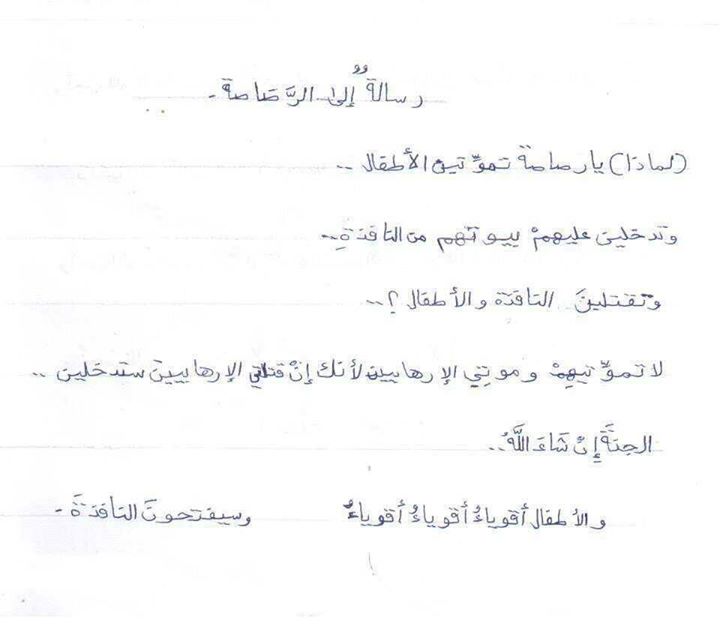 رسالةٌ إلى الرَّصاصة.
(لماذا) يارصاصة تموِّتين الأطفال ..
وتدخلين عليهمْ بيوتهم من النافذةِ..
وتقتلينَ النافذة والأطفال ؟..
لا تموِّتيهِمْ وموتِي الإرهابيين لأنك إنْ قتلتي الإرهابيين ستدخلين ..
الجنةَ إِنْ شَاءَ اللَّهُ..
والأطفال أقوياءُ أقوياءُ أقوياءُ وسيفتحونَ النافذةَ.